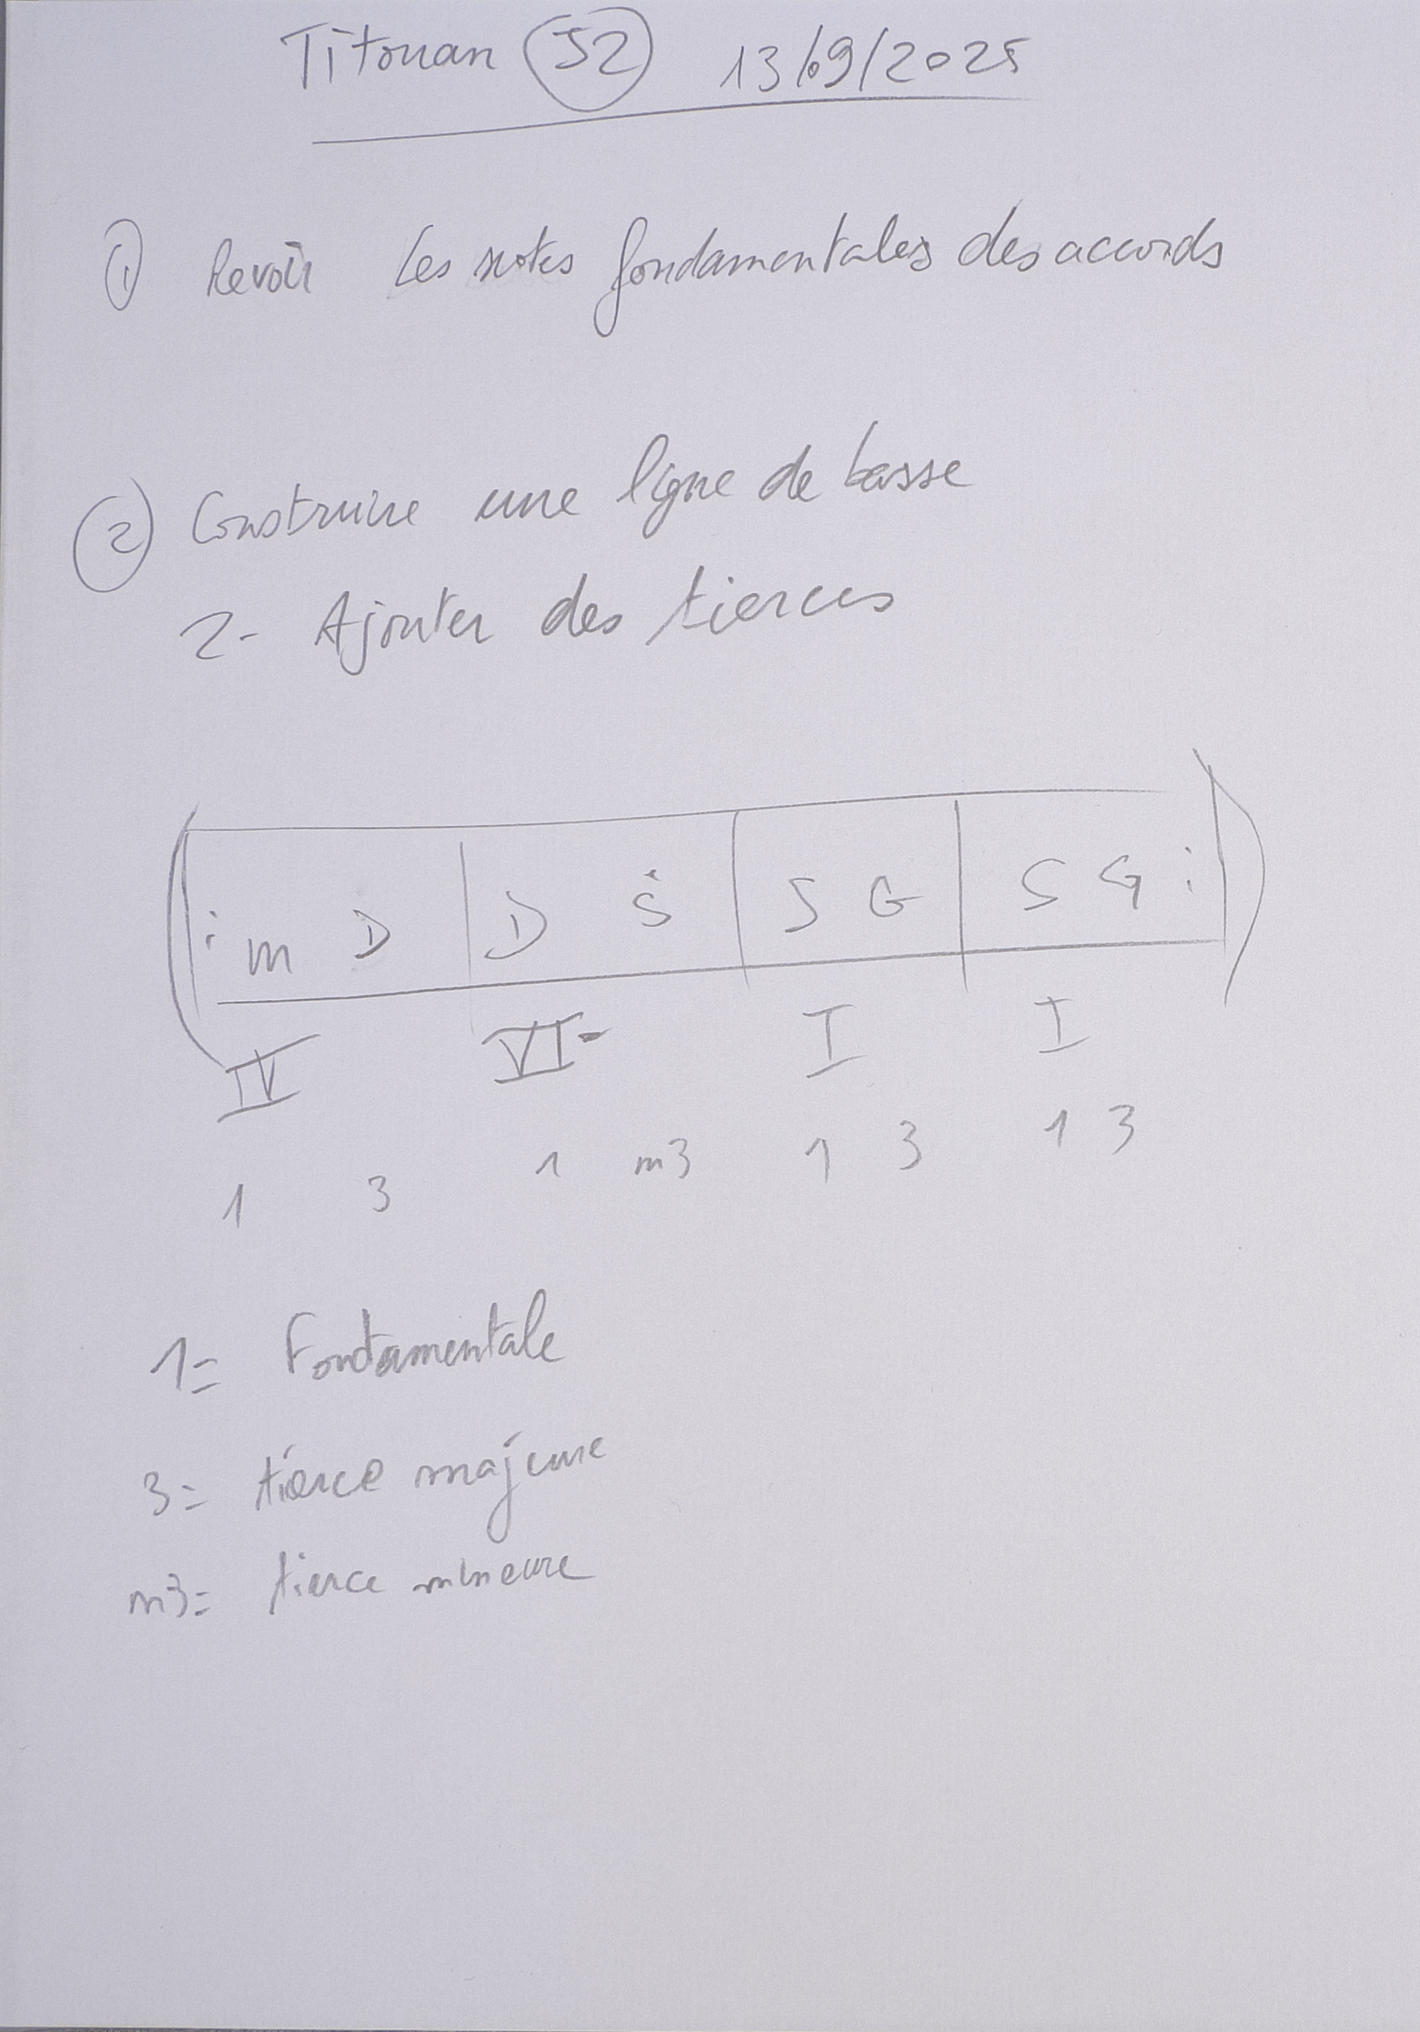 Titouan J2 13/09/2025
1 Revoir Les notes fondamentales des accords
2 Construire une ligne de basse
2- Ajouter des tierces
: m D | D Ṡ | S G | S G :
IV VI- I I
1 3 1 m3 1 3 1 3
1= Fondamentale
3= tierce majeure
m3= tierce mineure